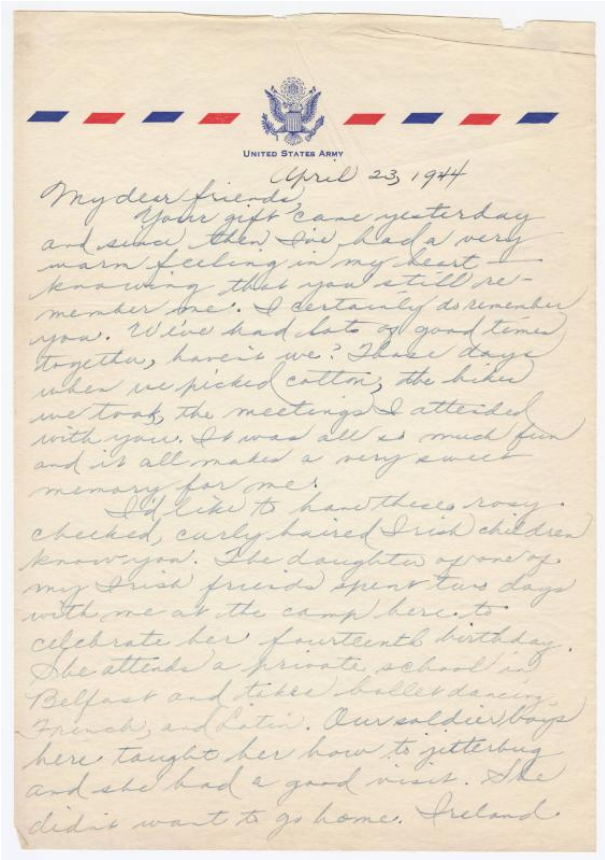 UNITED STATES ARMY
April 23, 1944
My dear friends,
Your gift came yesterday
and since then I've had a very
warm feeling in my heart -
knowing that you still re-
member me. I certainly do remember
you. We've had lots of good times
together, haven't we? Those days
when we picked cotton, the hikes
we took, the meetings I attended
with you. It was all so much fun
and it all makes a very sweet
memory for me.
I'd like to have these rosy
cheeked, curly haired Irish children
know you. The daughter of one of
my Irish friends spent two days
with me at the camp here to
celebrate her fourteenth birthday.
She attends a private school in
Belfast and takes ballet dancing,
French, and Latin. Our soldier boys
here taught her how to jitterbug
and she had a good visit. She
didn't want to go home. Ireland